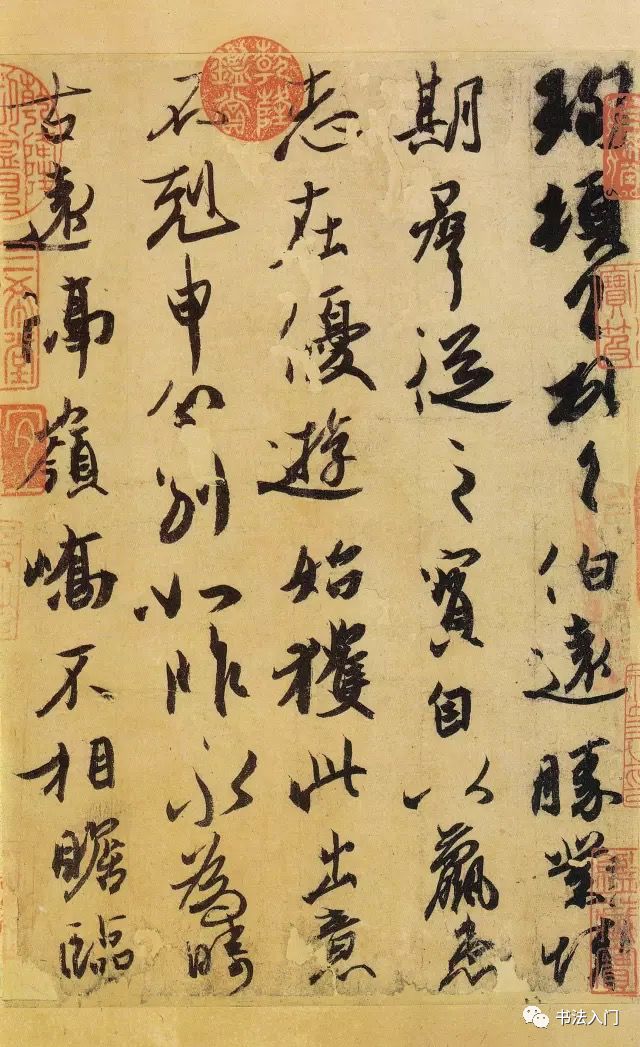 珣頓首頓首伯遠勝業情
期群從之寶自以羸患
志在優遊始獲此出意
不剋申分別如昨永為疇
古遠隔嶺嶠不相瞻臨
三希堂
書法入门